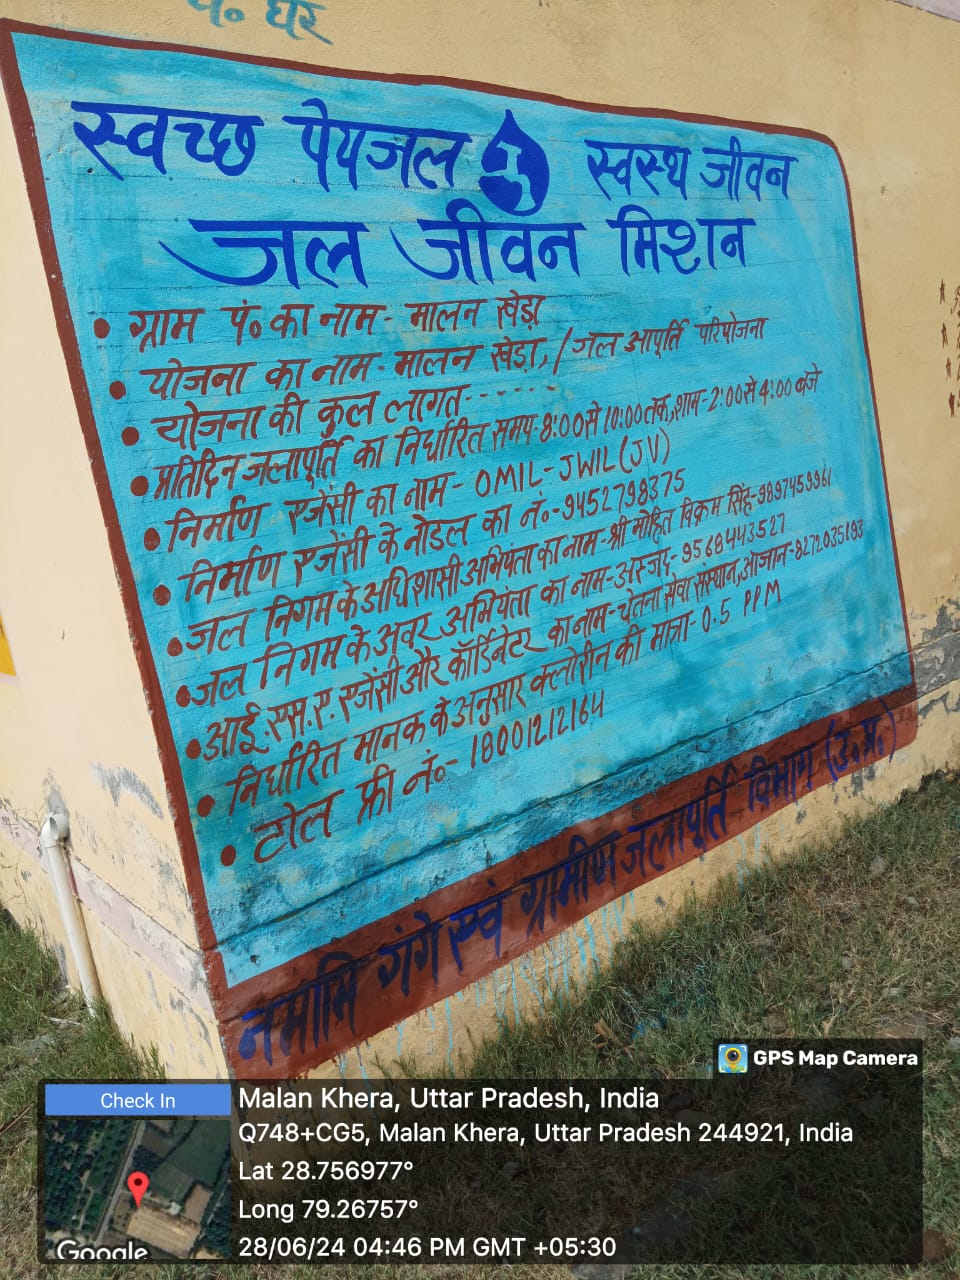 पं० घर
स्वच्छ पेयजल स्वस्थ जीवन
जल जीवन मिशन
• ग्राम पं० का नाम - मालन खेड़ा
• योजना का नाम - मालन खेड़ा, / जल आपूर्ति परियोजना
• योजना की कुल लागत - - - - - -
• प्रतिदिन जलापूर्ति का निर्धारित समय - 8:00 से 10:00 तक, शाम - 2:00 से 4:00 बजे
• निर्माण एजेंसी का नाम - OMIL - JWIL (JV)
• निर्माण एजेंसी के नोडल का नं० - 9452798375
• जल निगम के अधिशासी अभियंता का नाम - श्री मोहित विक्रम सिंह - 9897459961
• जल निगम के अवर अभियंता का नाम - अस्जद - 9568443527
• आई.एस.ए. एजेंसी और कॉर्डिनेटर का नाम - चेतना सेवा संस्थान, - 8272035193
• निर्धारित मानक के अनुसार क्लोरीन की मात्रा - 0.5 PPM
• टोल फ्री नं० - 18001212164
नमामि गंगे एवं ग्रामीण जलापूर्ति विभाग (उ.प्र.)
GPS Map Camera
Check In
Malan Khera, Uttar Pradesh, India
Q748+CG5, Malan Khera, Uttar Pradesh 244921, India
Lat 28.756977°
Long 79.26757°
28/06/24 04:46 PM GMT +05:30
Google